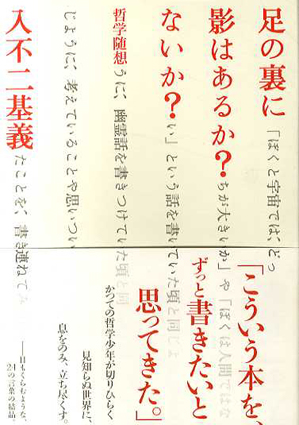 足の裏に
「ぼくと宇宙では、どっ
影はあるか?
ちが大きいか」や「ぼくは人間ではな
ないか?
い」という話を書いていた頃と同じよ
哲学随想
うに、幽霊話を書きつけていた頃と同
じように、考えていることや思いつい
入不二基義
たことを、書き連ねてみ
「こういう本を、
ずっと書きたいと
思ってきた。」
かつての哲学少年が切りひらく
見知らぬ世界に、
息をのみ、立ち尽くす。
――目もくらむような、
24の言葉の結晶。